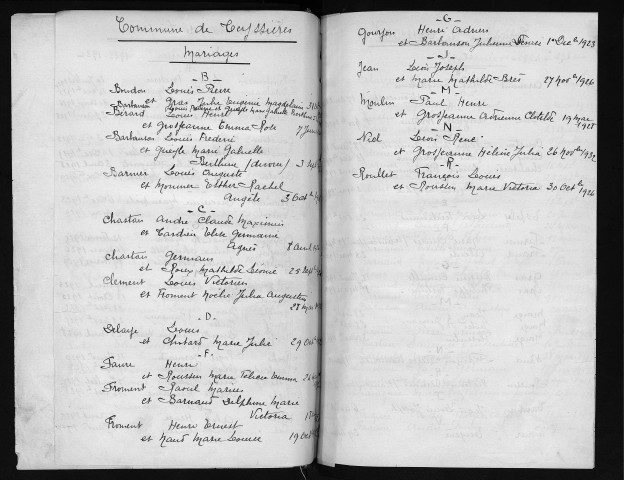 Commune de Teyssières
Mariages
- B -
Bourdon Louis Pierre
et Gras Julie Eugénie Magdeleine
Barbanson
Bérard Louis Henri
et Grosjeanne Emma Rose
Barbanson Louis Frédéric
et Gueyle Marie Gabrielle
Berthine (divorcé) 3
Barnier Louis Auguste
et Monier Esther Rachel
Angèle 3 Oct
- C -
Chastan André Claude Maximin
et Tardieu Elise Germaine
Agnès 8 avril
Chastan Germain
et Roux Mathilde Léonie 25 Sept
Clement Louis Victorin
et Froment Noélie Julia Augustine
28 mai
- D -
Delaye Louis
et Autard Marie Julie 29 Oct
- F -
Faure Henri
et Roussin Marie
Froment Raoul Marius
et Barnaud Delphine Marie
Victoria
Froment Henri Ernest
et Naud Marie Louise 19 Oct
- G -
Gourjon Henri Adrien
et Barbanson Julienne Denise 1er Dec 1923
- J -
Jean Léon Joseph
et Marie Mathilde Brès 27 nov 1926
- M -
Moulin Paul Henri
et Grosjeanne Adrienne Clotilde 19 mai
1928
- N -
Niel Léon René
et Grosjeanne Hélène Julia 26 Nov 1932
- R -
Roullet François Louis
et Roussin Marie Victoria 30 Oct 1926